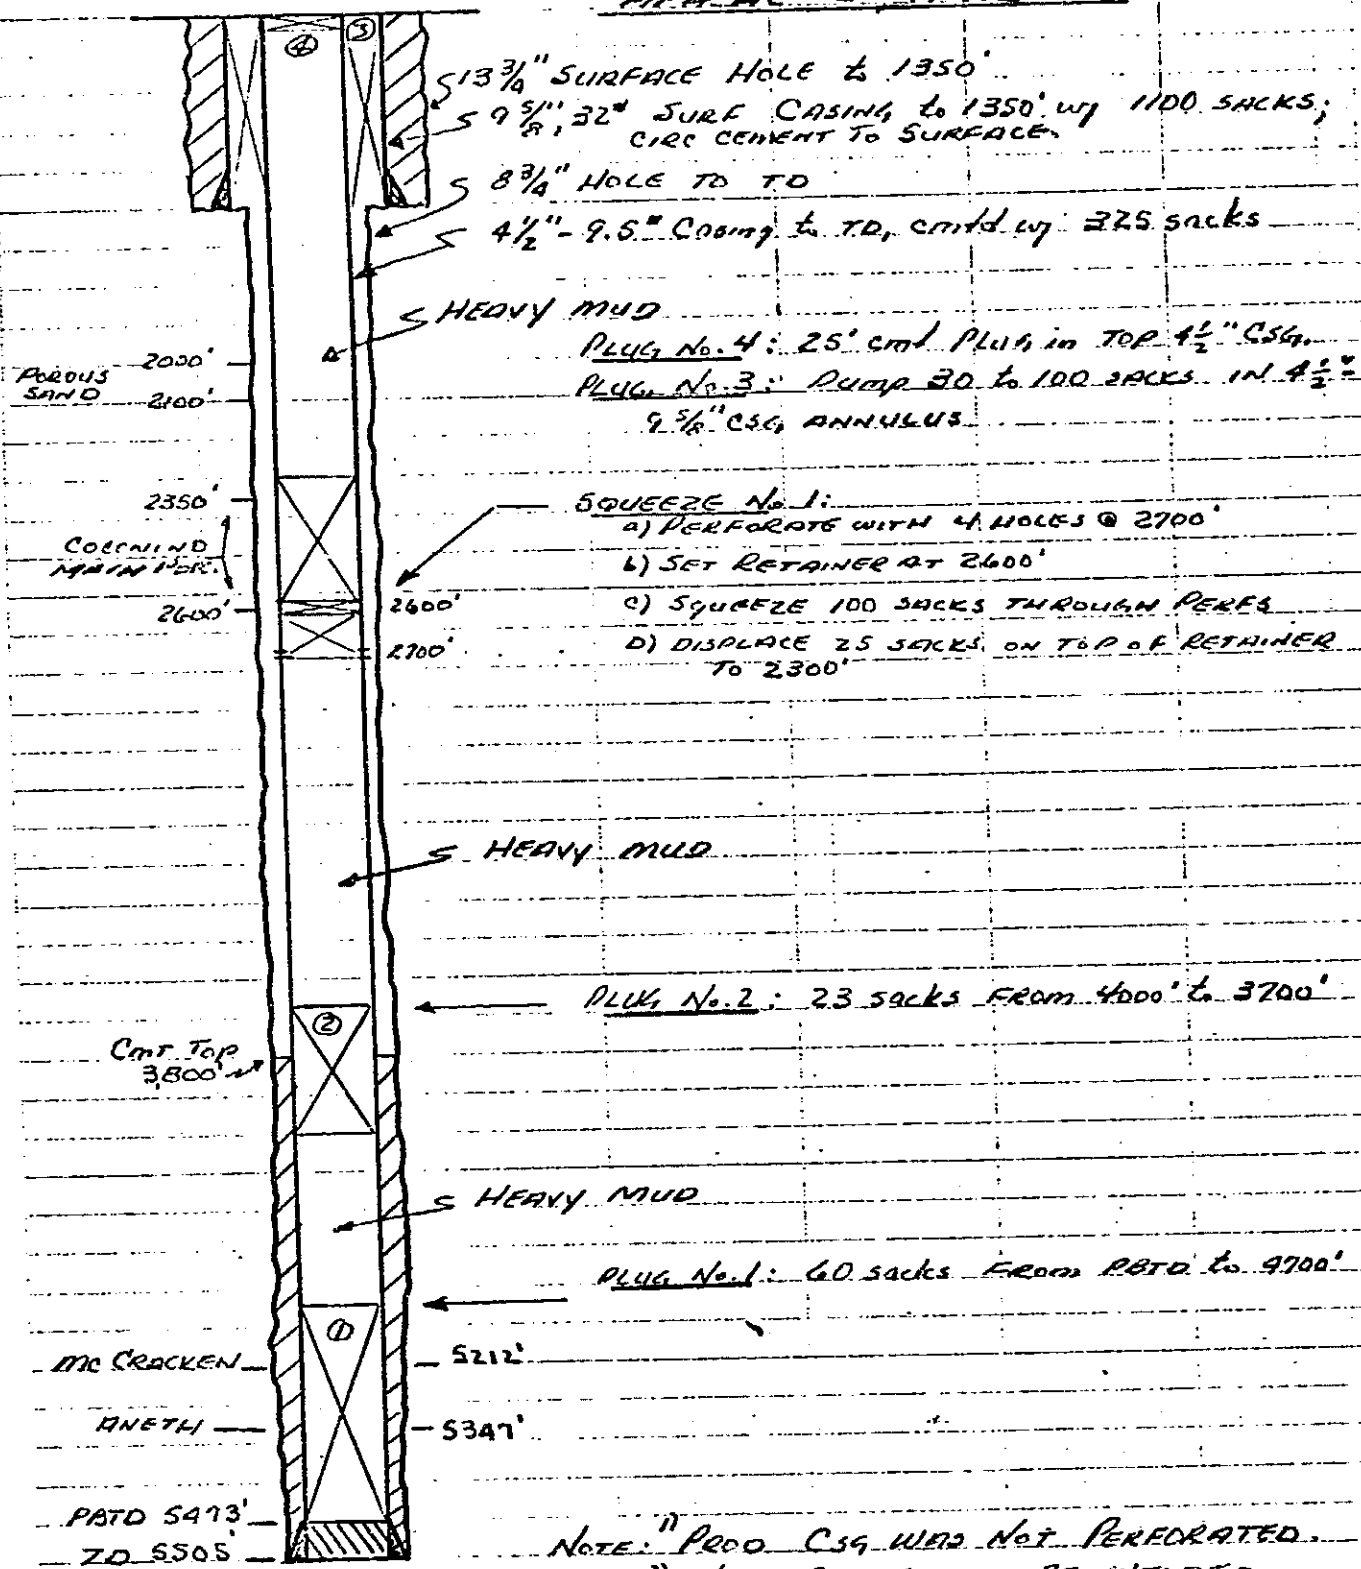 ④ ③
13 3/4" SURFACE HOLE to 1350'
9 5/8", 32# SURF CASING to 1350' w/ 1100 SACKS;
CIRC CEMENT TO SURFACE.
8 3/4" HOLE TO TD
4 1/2" - 9.5# Casing to TD, cmtd w/ 325 sacks
HEAVY MUD
PLUG No. 4: 25' cmt PLUG in TOP 4 1/2" CSG.
2000'
POROUS
SAND
2100'
PLUG No. 3: Dump 30 to 100 SACKS IN 4 1/2" -
9 5/8" CSG ANNULUS
2350'
SQUEEZE No 1:
a) PERFORATE WITH 4 HOLES @ 2700'
b) SET RETAINER AT 2600'
2600'
2600'
c) SQUEEZE 100 SACKS THROUGH PERFS
2700'
D) DISPLACE 25 SACKS ON TOP OF RETAINER
TO 2300'
HEAVY MUD
PLUG No. 2: 23 sacks FROM 4000' to 3700'
②
Cmt Top
3,800'
HEAVY MUD
PLUG No. 1: 60 sacks FROM PBTD to 4700'
①
MC CRACKEN
5212'
ANETH
5347'
PBTD 5473'
TD 5505'
NOTE: 1) PROD CSG WAS NOT PERFORATED.